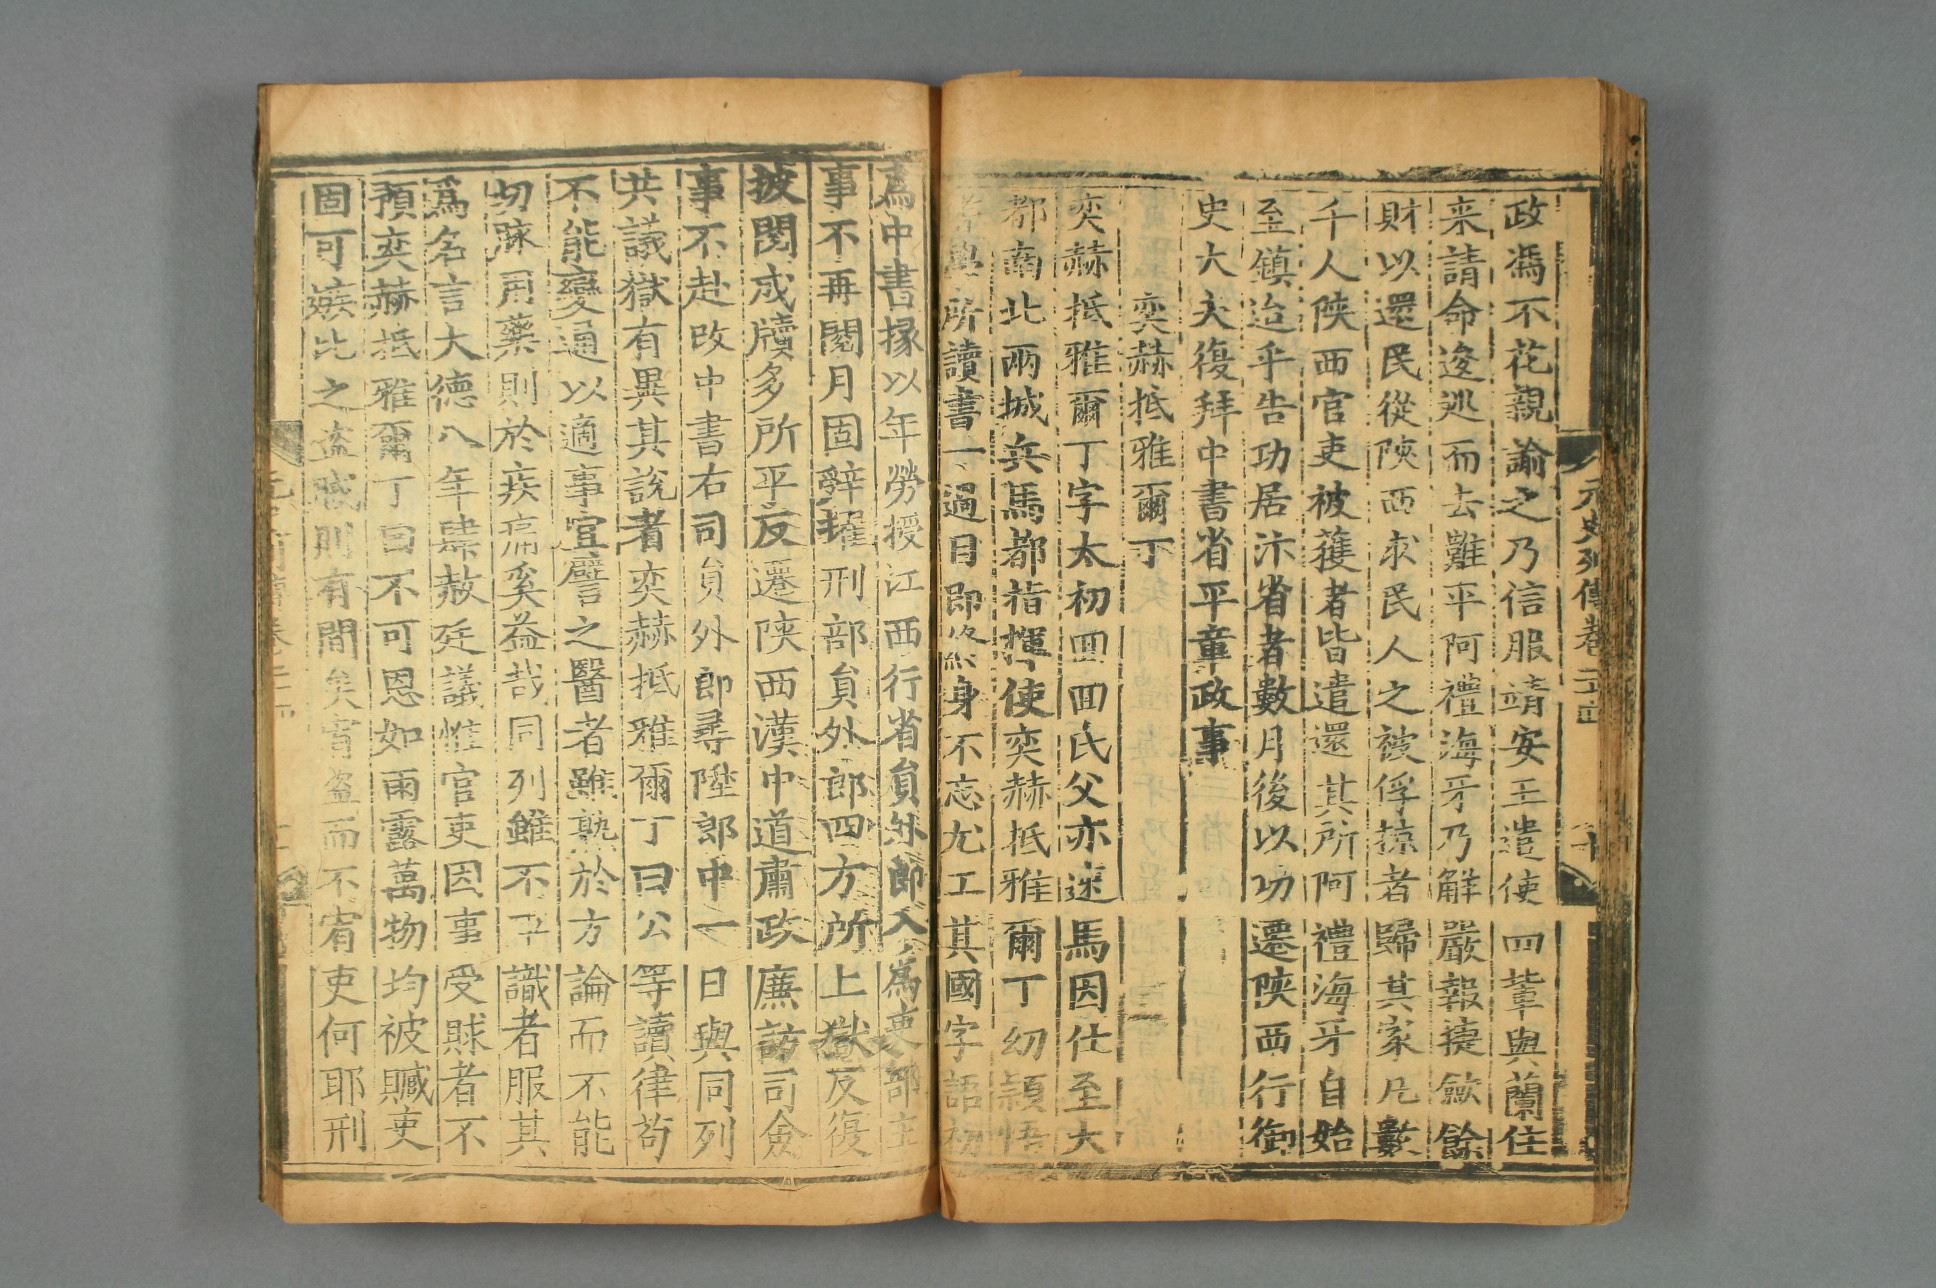 元史列傳卷二十四
十
政馮不花親諭之乃信服靖安王遣使四輩與蘭住
来請命逡廵而去難平阿禮海牙乃解嚴報捷斂餘
財以還民從陝西求民人之被俘掠者歸其家凡數
千人陝西官吏被獲者皆遣還其所阿禮海牙自始
至鎮迨乎告功居汴省者數月後以功遷陝西行御
史大夫復拜中書省平章政事
奕赫抵雅爾丁
奕赫抵雅爾丁字太初囬囬氏父亦速馬因仕至大
都南北兩城兵馬都指揮使奕赫抵雅爾丁幼穎悟
嗜學所讀書一過目即終身不忘尤工其國字語初
爲中書掾以年勞授江西行省員外郎入爲吏部主
事不再閱月固辭擢刑部員外郎四方所上獄反復
披閱成牘多所平反遷陝西漢中道肅政廉訪司僉
事不赴改中書右司員外郎尋陞郎中一日與同列
共議獄有異其說者奕赫抵雅爾丁曰公等讀律苟
不能變通以適事宜譬之醫者雖熟於方論而不能
切脉用藥則於疾痛奚益哉同列雖不平識者服其
爲名言大德八年肆赦廷議惟官吏因事受賕者不
預奕赫抵雅爾丁曰不可恩如雨露萬物均被贓吏
固可嫉比之盗賊則有間矣宥盗而不宥吏何耶刑